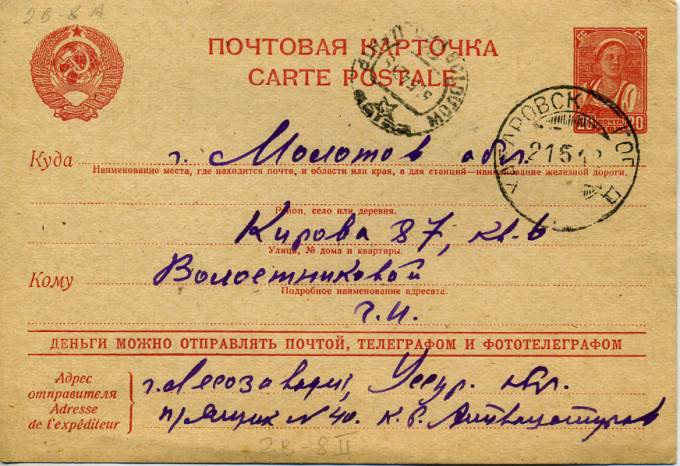 2В-8А
ПОЧТОВАЯ КАРТОЧКА
CARTE POSTALE
СС СР
20 ПОЧТА 20
21 5
Куда г. Молотов обл.
Наименование места, где находится почта, и области или края, а для станций—наименование железной дороги.
Район, село или деревня.
Кирова 87, кв-6
Улица, № дома и квартиры.
Кому Волостниковой
Подробное наименование адресата.
Г. И.
ДЕНЬГИ МОЖНО ОТПРАВЛЯТЬ ПОЧТОЙ, ТЕЛЕГРАФОМ И ФОТОТЕЛЕГРАФОМ
Адрес отправителя
Adresse de l'expéditeur
г. Лесозаводск, Уссур. обл.
п/ящик N 40.
2В-8II